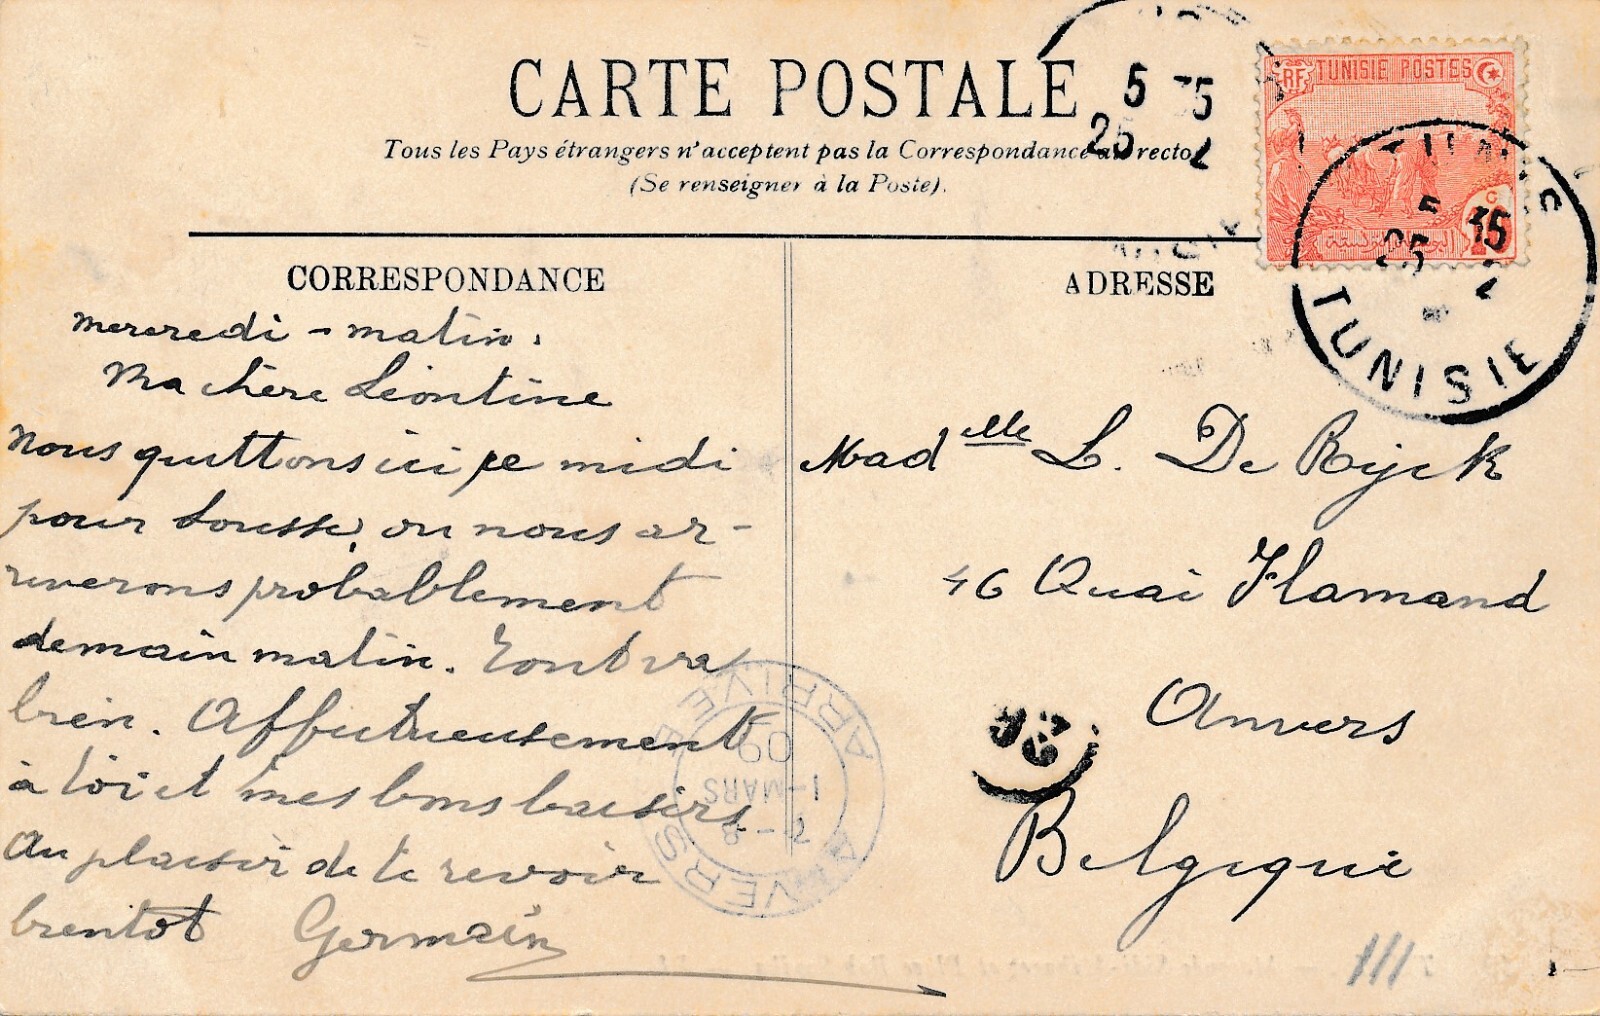 CARTE POSTALE
Tous les Pays étrangers n'acceptent pas la Correspondance au recto
(Se renseigner à la Poste).
RF TUNISIE POSTES
5 35
25 2
TUNIS
5 35
25 2
TUNISIE
CORRESPONDANCE
mercredi - matin.
Ma chère Léontine
Nous quittons ici ce midi
pour Sousse, ou nous ar-
riverons probablement
demain matin. Tout va
bien. Affectueusement
à toi et mes bons baisers
Au plaisir de te revoir
bientôt Germain
ADRESSE
Mad elle L. De Rijck
46 Quai Flamand
Anvers
Belgique
ANVERS
ARRIVÉE
7-8
1-MARS
09